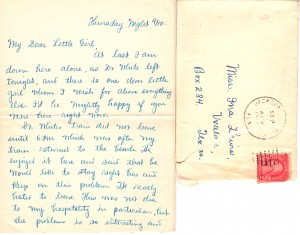 Thursday Night
My Dear Little Girl,
At last I am
down here alone, as Dr White left
tonight, and there is one dear little
girl whom I wish for above everything
else. I'd be mighty happy if you
were here right now.
Dr. Whites train did not leave
until 6 pm which was after my
train returns to the beach. He
enjoyed it here and said that he
would like to stay right here and
keep on this problem. He really
hates to leave. This was not due
to my hospitality in particular, but
the problem is so interesting and
Miss Ima
Box 284,
Uvalde,
Texas.
SEP